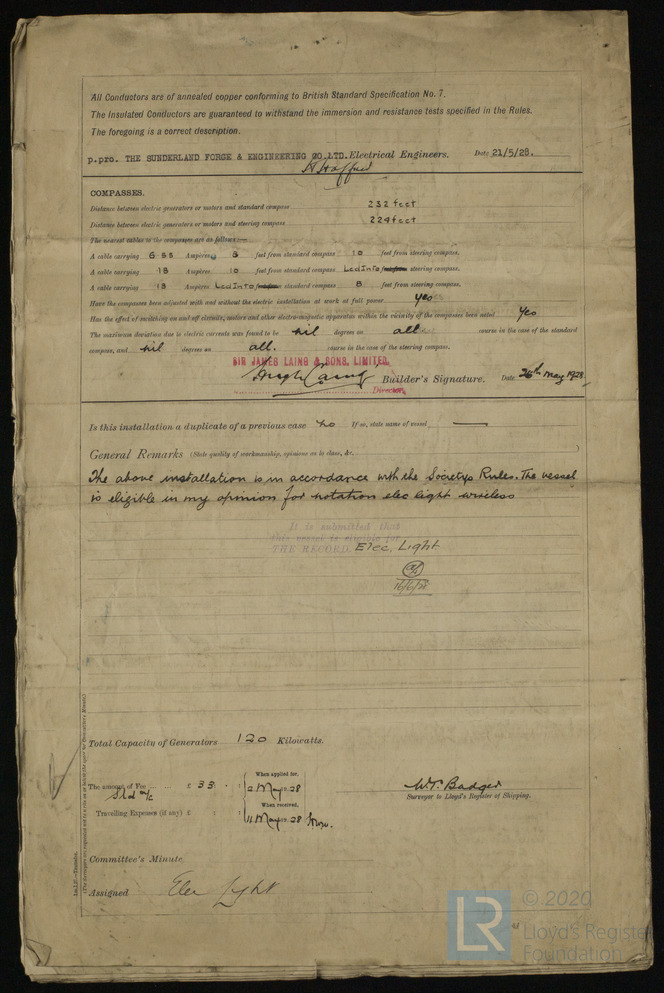 All Conductors are of annealed copper conforming to British Standard Specification No. 7.
The Insulated Conductors are guaranteed to withstand the immersion and resistance tests specified in the Rules.
The foregoing is a correct description.
p.pro. THE SUNDERLAND FORGE & ENGINEERING CO.,LTD. Electrical Engineers. Date 21/5/28.
COMPASSES.
Distance between electric generators or motors and standard compass 232 feet
Distance between electric generators or motors and steering compass 224 feet
The nearest cables to the compasses are as follows:—
A cable carrying Ampères 8 feet from standard compass 10 feet from steering compass.
A cable carrying .18 Ampères 10 feet from standard compass Led Into steering compass.
A cable carrying .18 Ampères Led Into standard compass 8 feet from steering compass.
Have the compasses been adjusted with and without the electric installation at work at full power yes
Has the effect of switching on and off circuits, motors and other electro-magnetic apparatus within the vicinity of the compasses been noted yes
The maximum deviation due to electric currents was found to be nil degrees on all. course in the case of the standard
compass, and nil degrees on all. course in the case of the steering compass.
SIR JAMES LAING & SONS. LIMITED.
Hugh Laing Builder's Signature. Date 25th May 1928.
Director.
Is this installation a duplicate of a previous case no If so, state name of vessel —
General Remarks (State quality of workmanship, opinions as to class, &c. )
The above installation is in accordance with the Societys Rules. The vessel
is eligible in my opinion for notation elec light wireless
It is submitted that
this vessel is eligible for
THE RECORD. Elec. Light
16/6/28
Total Capacity of Generators 120 Kilowatts.
The amount of Fee ... £ 33 : :
When applied for,
2 May 1928
Travelling Expenses (if any) £ : :
When received,
11 May 1928
W.T. Badger
Surveyor to Lloyd's Register of Shipping.
Committee's Minute
Assigned Elec Light
© 2020
LR
Lloyd's Register
Foundation